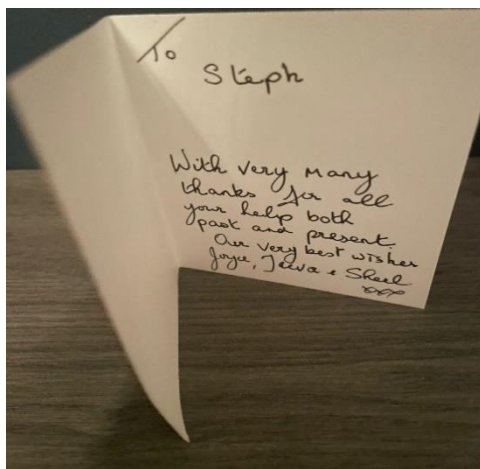 To
Steph
With very many
thanks for all
your help both
past and present.
Our very best wishes
Joyce, Jeeva + Sheel
xxx